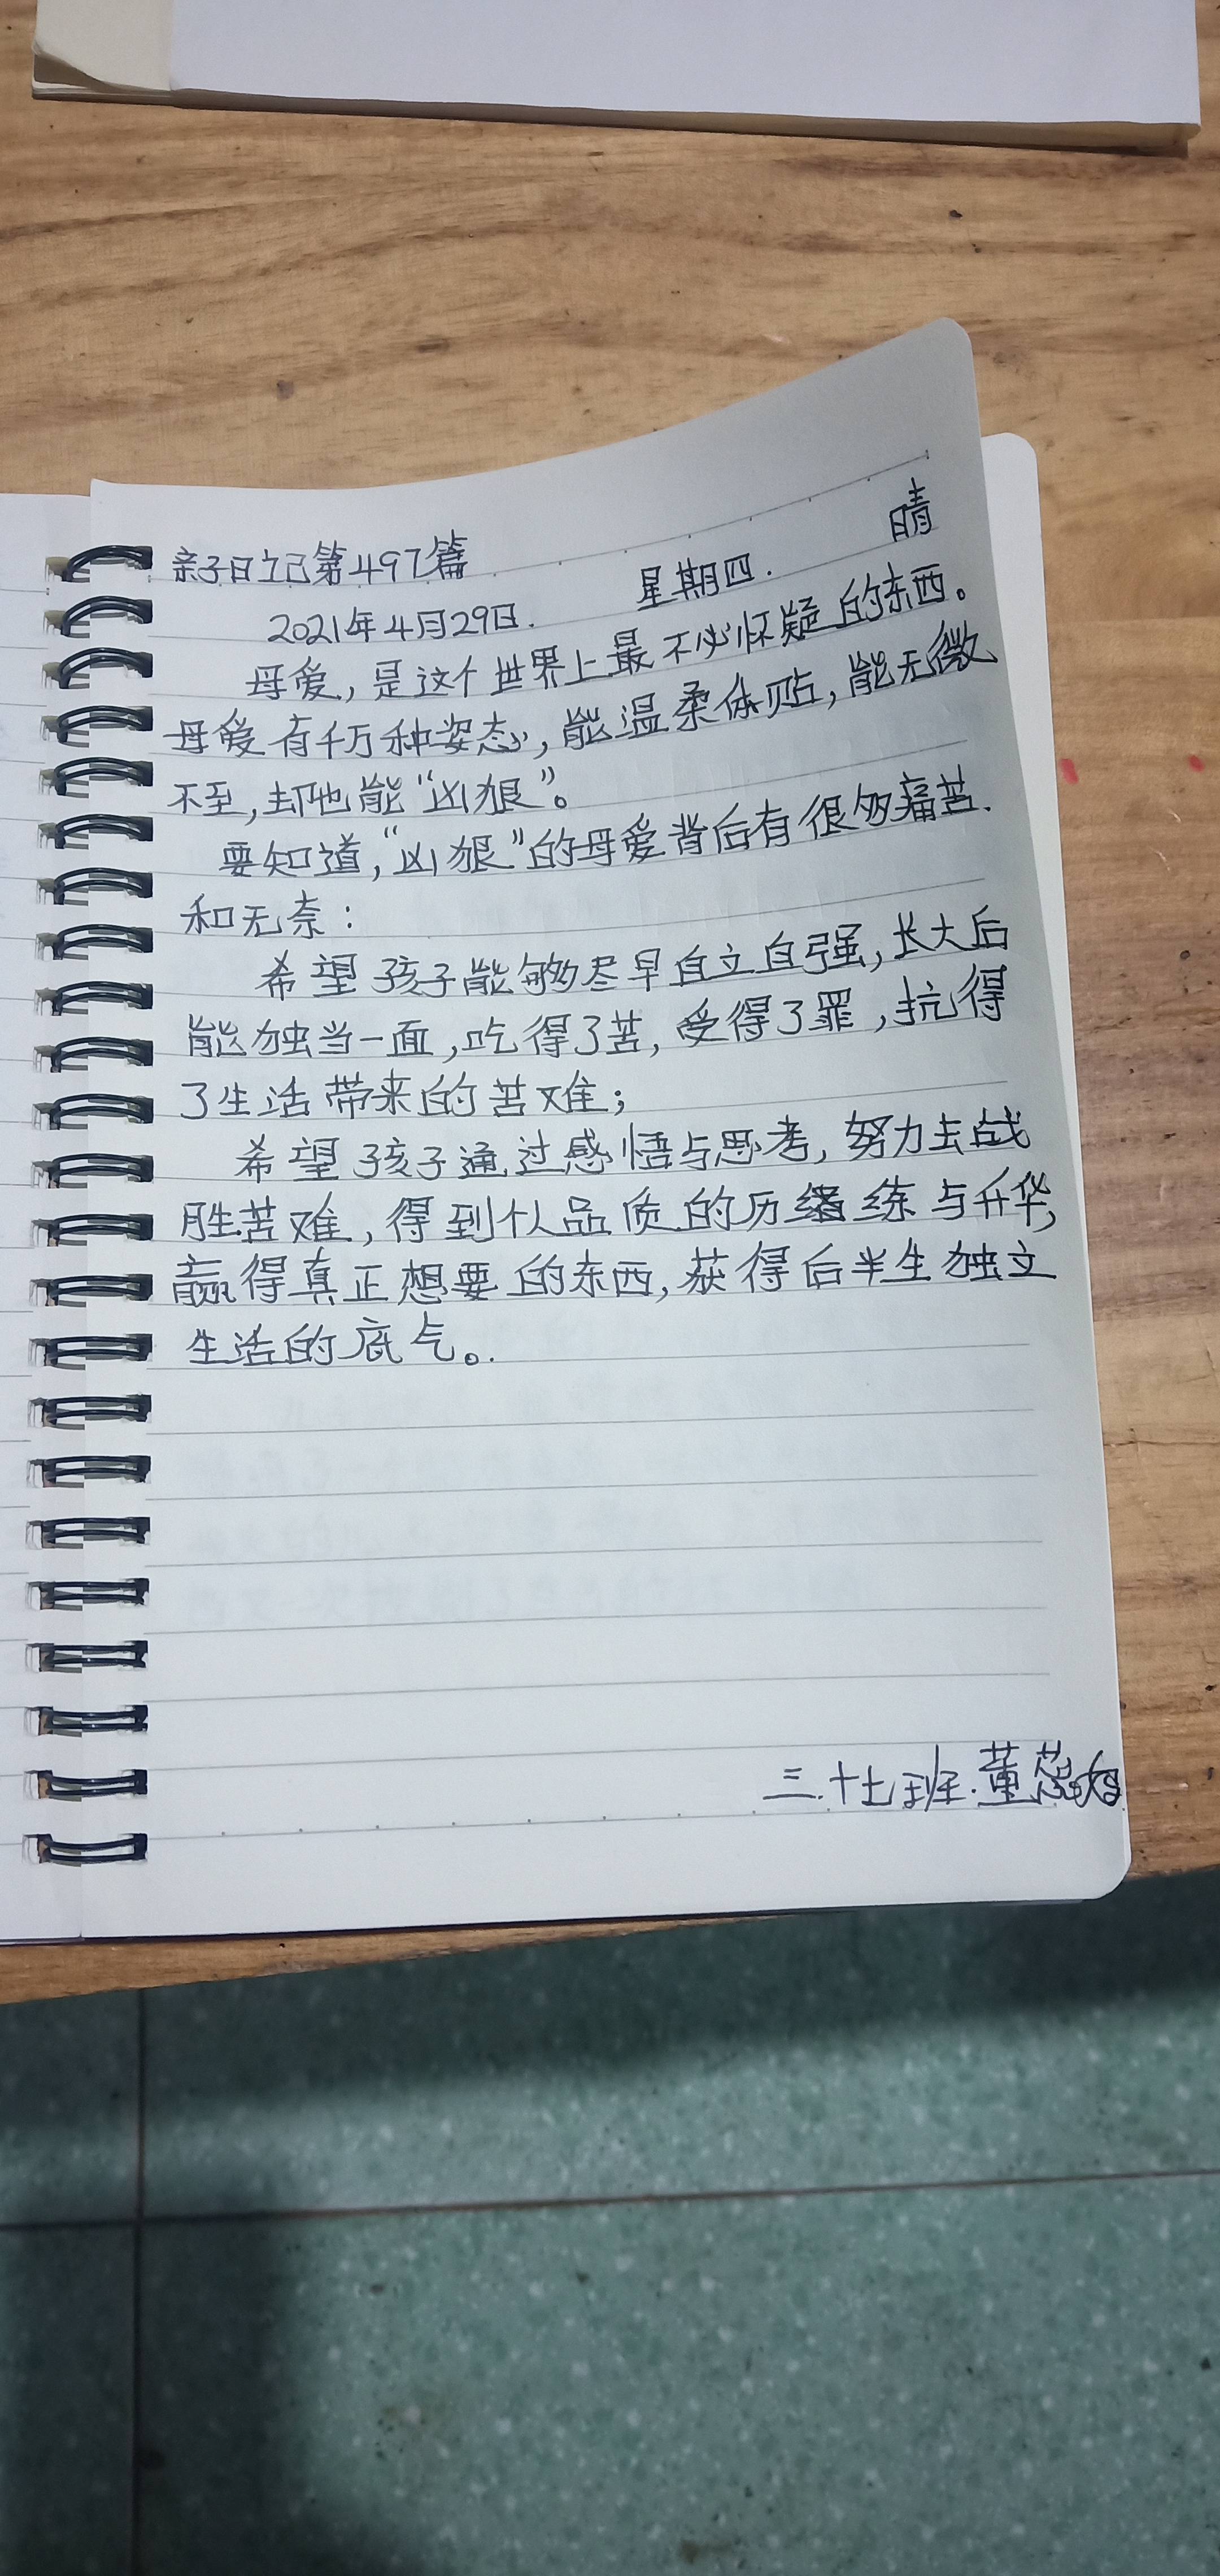 亲子日记第497篇
2021年4月29日. 星期四. 晴
母爱，是这个世界上最不必怀疑的东西。
母爱有千万种姿态，能温柔体贴，能无微
不至，却也能“凶狠”。
要知道，“凶狠”的母爱背后有很多痛苦.
和无奈：
希望孩子能够尽早自立自强，长大后
能独当一面，吃得了苦，受得了罪，抗得
了生活带来的苦难；
希望孩子通过感悟与思考，努力去战
胜苦难，得到个人品质的历练与升华，
赢得真正想要的东西，获得后半生独立
生活的底气。.
三.十七班.董蕊